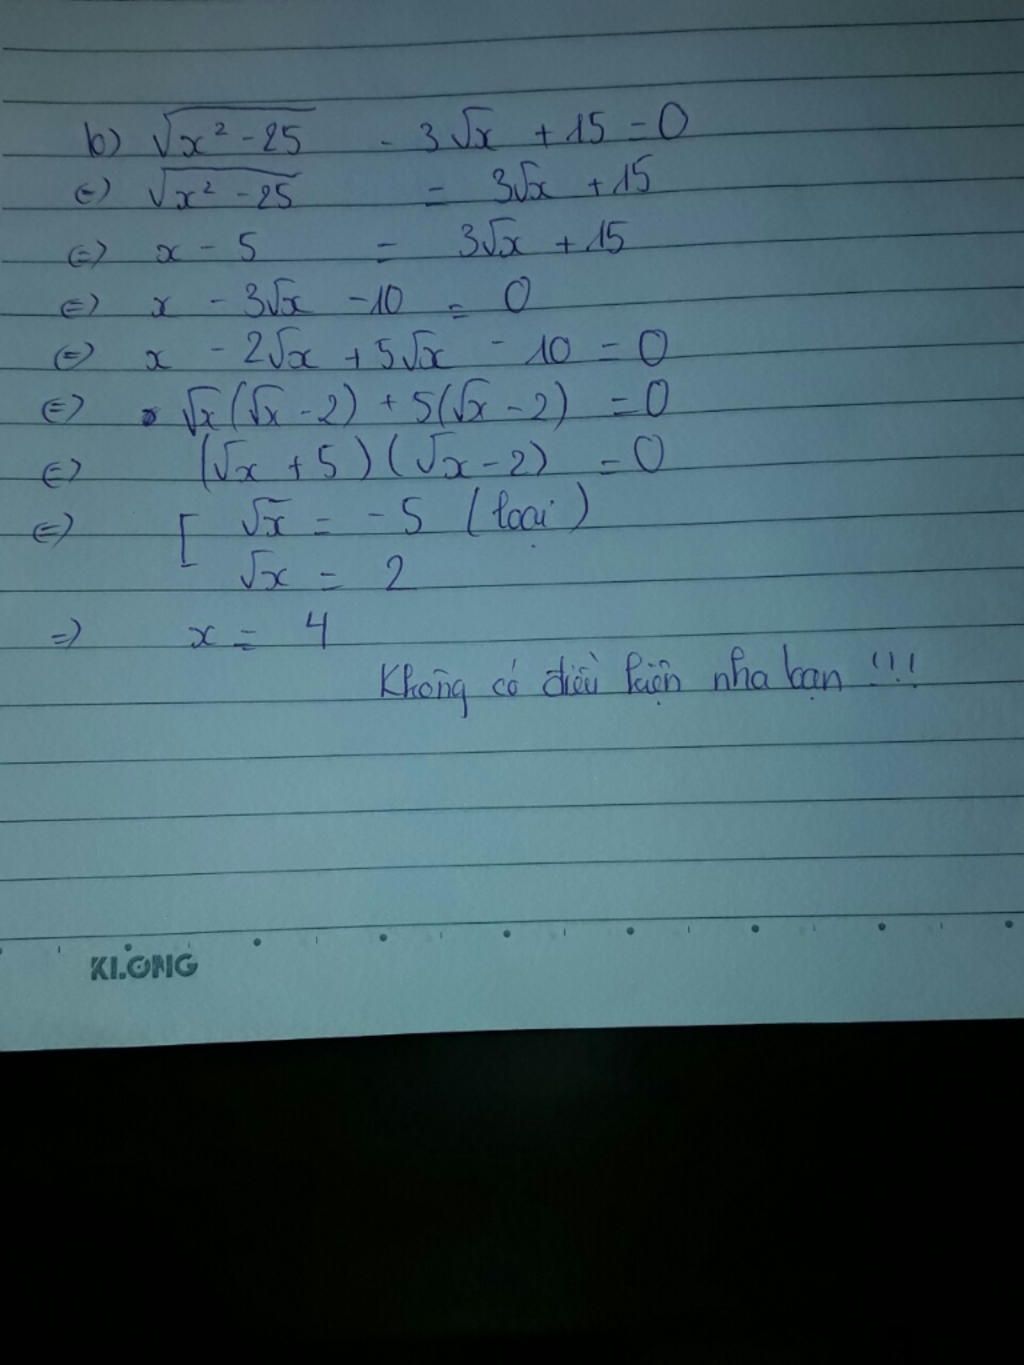 b) √(x² - 25) - 3√x + 15 = 0
⇔) √(x² - 25) = 3√x + 15
⇔) x - 5 = 3√x + 15
⇔) x - 3√x - 10 = 0
⇔) x - 2√x + 5√x - 10 = 0
⇔) √x(√x - 2) + 5(√x - 2) = 0
⇔) (√x + 5)(√x - 2) = 0
⇔) [ √x = -5 (loại)
√x = 2
=) x = 4
Không có điều kiện nha bạn !!!
KLONG